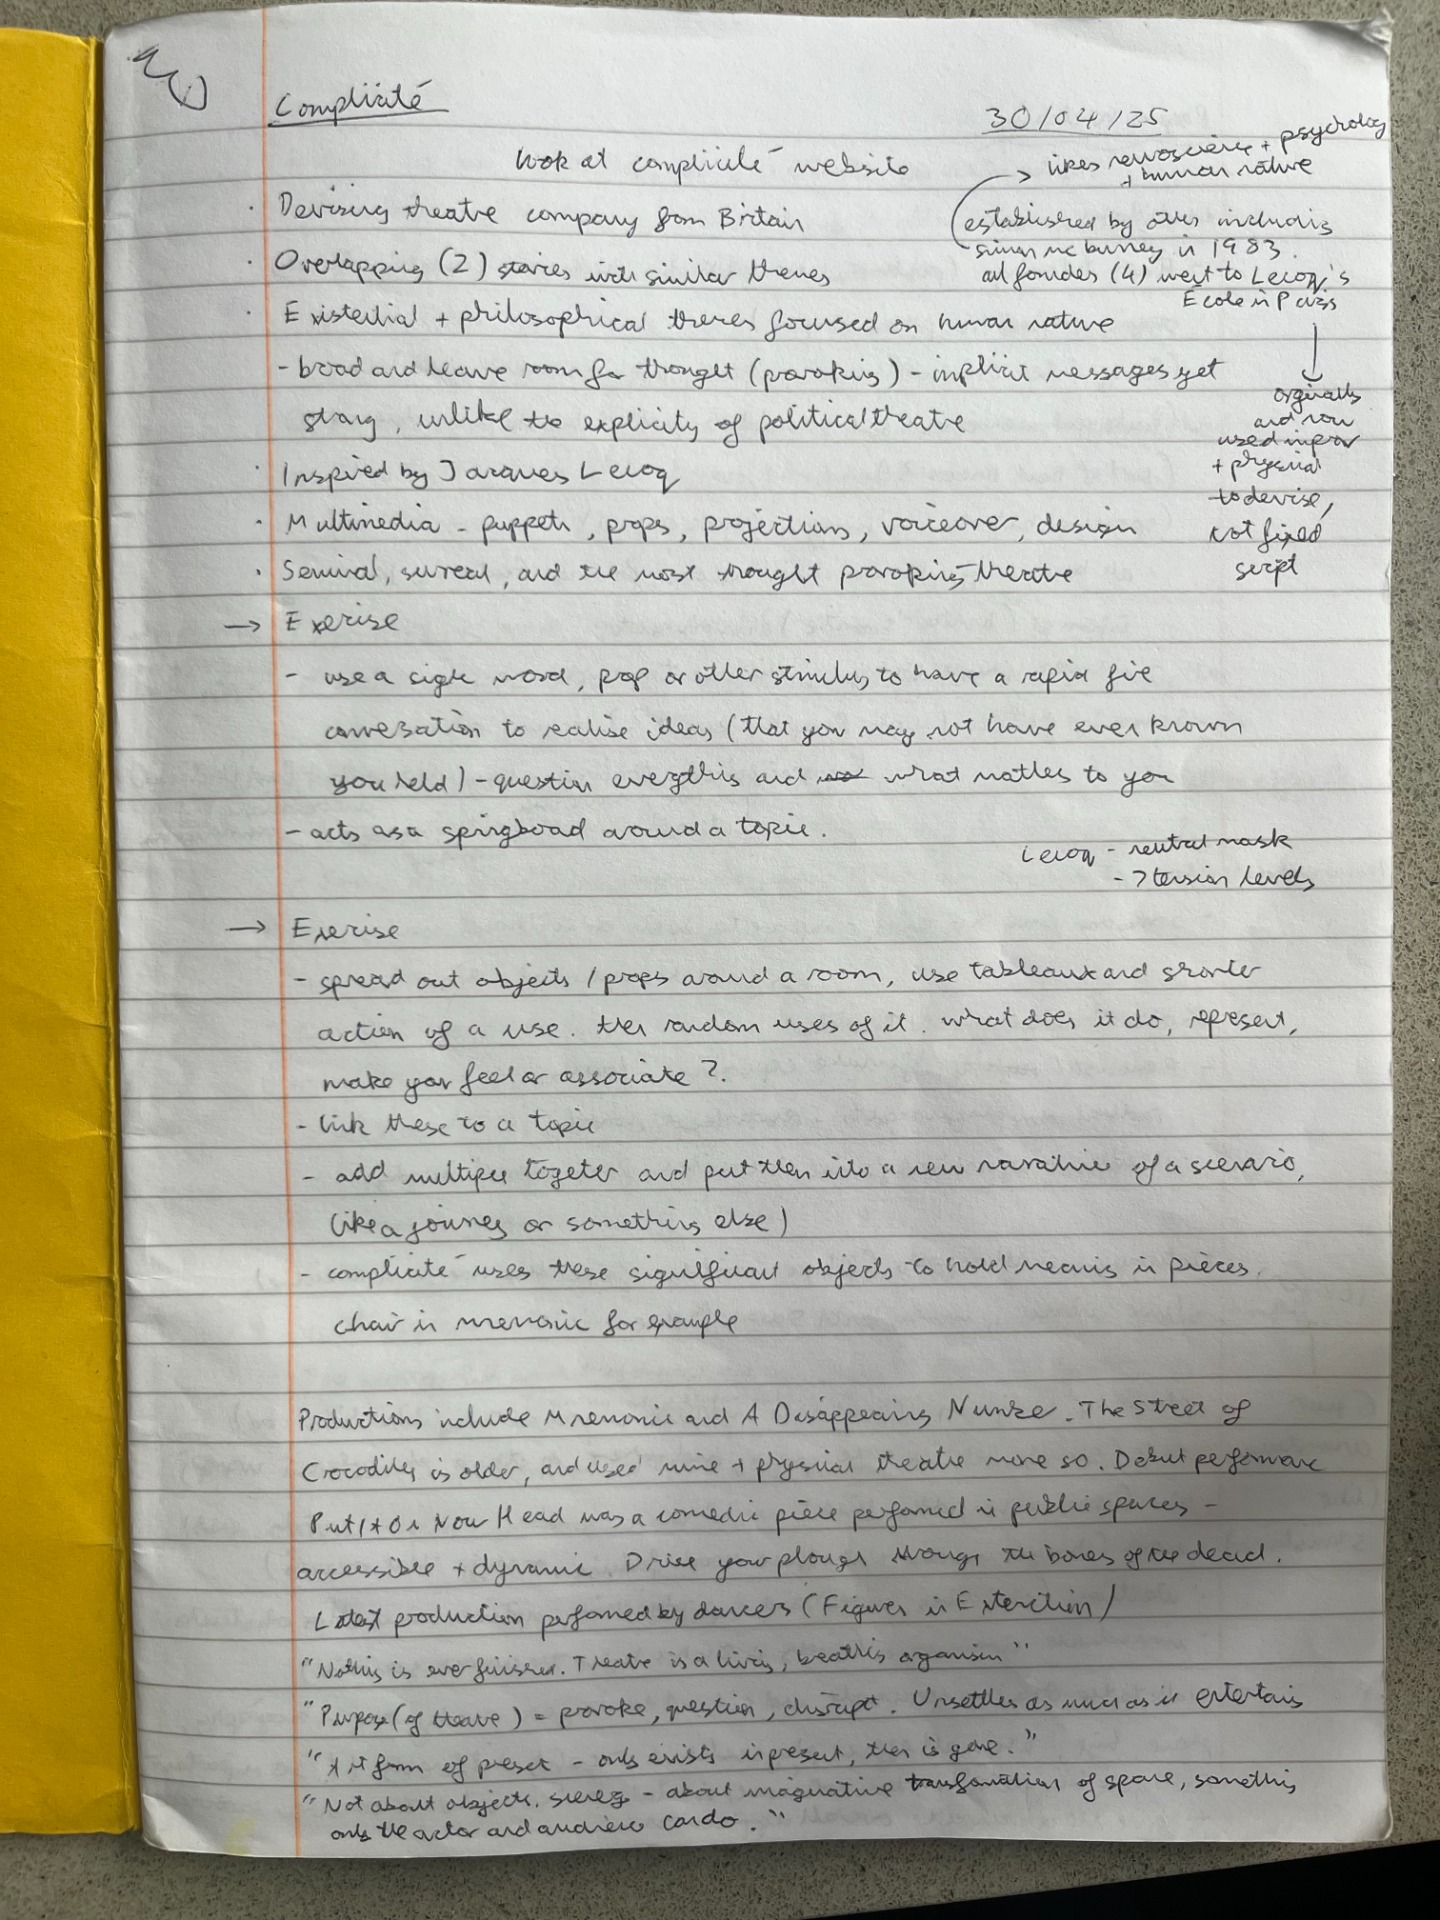 Complicité
30/04/25
look at complicité website
→ likes neuroscience + psychology
+ human nature
· Devising theatre company from Britain
established by others including
simon mc burney in 1983.
all founders (4) went to Lecoq's
École in Paris
· Overlapping (2) stories with similar themes
· Existential + philosophical themes focused on human nature
- broad and leave room for thought (provoking) - implicit messages yet
strong, unlike the explicity of political theatre
originally
and now
used improv
+ physical
to devise,
not fixed
script
· Inspired by Jacques Lecoq
· Multimedia - puppets, props, projections, voiceover, design
· Seminal, surreal, and the most thought provoking theatre
→ Exercise
- use a single word, prop or other stimulus to have a rapid fire
conversation to realise ideas (that you may not have ever known
you held) - question everything and what matters to you
- acts as a springboard around a topic.
Lecoq - neutral mask
- 7 tension levels
→ Exercise
- spread out objects / props around a room, use tableaux and shorter
action of a use. then random uses of it. what does it do, represent,
make you feel or associate?.
- link these to a topic
- add multiple together and put them into a new narrative of a scenario,
(like a journey or something else)
- complicité uses these significant objects to hold meaning in pieces.
chair in mnemonic for example
Productions include Mnemonic and A Disappearing Number. The Street of
Crocodiles is older, and used mime + physical theatre more so. Debut performance
Put It On Your Head was a comedic piece performed in public spaces -
accessible + dynamic. Drive your plough through the bones of the dead.
Latest production performed by dancers (Figures in Extinction)
"Nothing is ever finished. Theatre is a living, breathing organism"
"Purpose (of theatre) = provoke, question, disrupt. Unsettles as much as it entertains
"Art form of present - only exists in present, then is gone."
"Not about objects, scenery - about imaginative transformation of space, something
only the actor and audience can do."